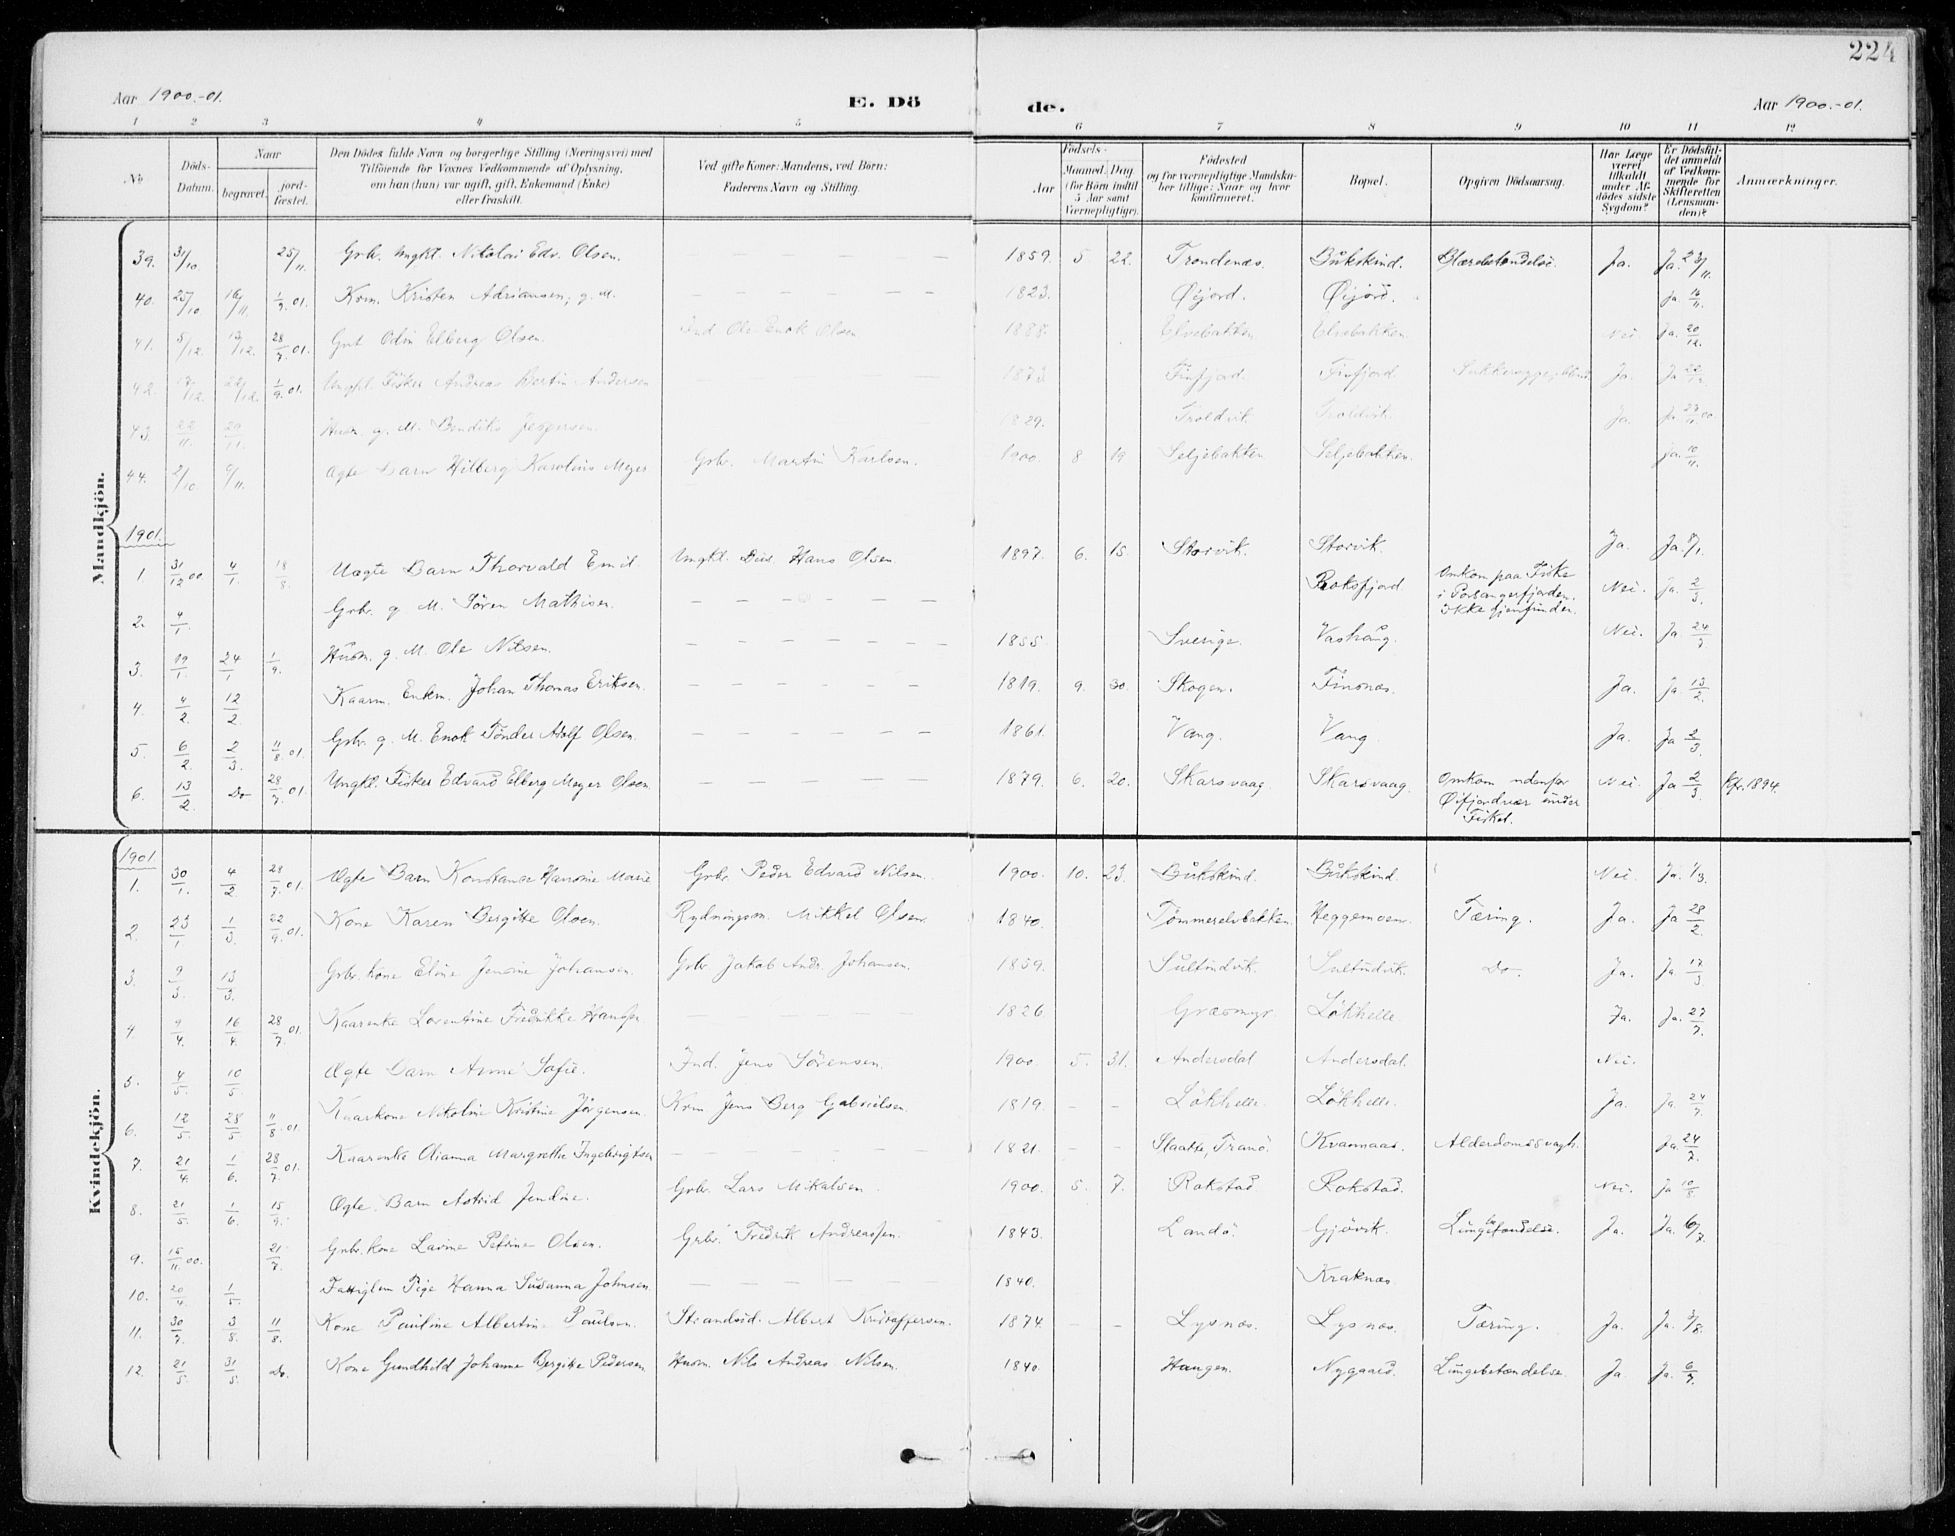 224
Aar 1900-01. E. Dö de. Aar 1900-01.
1 2 3 4 5 6 7 8 9 10 11 12
No Döds-Datum. Naar begravet. jordfæstet. Den Dödes fulde Navn og borgerlige Stilling (Næringsvei) med Tilföiende for Voxnes Vedkommende af Oplysning, om han (hun) var ugift, gift, Enkemand (Enke) eller fraskilt. Ved gifte Koner: Mandens, ved Börn: Faderens Navn og Stilling. Födsels- Aar Maaned. Dag (for Börn indtil 5 Aar samt Værnepligtige). Födested og for værnepligtige Mandskaber tillige: Naar og hvor konfirmeret. Bopæl. Opgiven Dödsaarsag. Har Læge været tilkaldt under Afdödes sidste Sygdom? Er Dödsfaldet anmeldt af Vedkommende for Skifteretten (Lensmanden)? Anmærkninger.
Mandkjön.
39. 31/10 25/11. Grbr. Ungkl. Nikolai Edv. Olsen. — — — 1859. 5 22. Trondenæs. Bukskind. Blærebetændelse. Ja. Ja 23/11.
40. 25/10 16/11. 1/9.01. Krm. Kristen Adriansen, g. M. — — — 1823. Øijord. Øijord. ja. 16/11.
41. 5/12. 13/12. 28/7.01. Gut Odin Elberg Olsen. Ind. Ole Enok Olsen 1888. Elvebakken Elvebakken. Nei. ja. 20/12.
42. 17/12. 22/12. 1/9.01. Ungkl. Fisker Andreas Bertin Andersen — — — 1873. Finfjord. Finfjord. Ja. Ja 22/12.
43. 22/11. 29/11. Husm. g. M. Bendiks Jespersen. — — — 1829. Troldvik. Troldvik. Ja.
44. 2/10 6/11. Ægte Barn Hilberg Karolius Meyer Grbr. Martin Karlsen. 1900. 8 19 Seljebakken Seljebakken. ja. 10/11.
1901.
1. 31/12 00. 4/1. 18/8. Uægte Barn Thorvald Emil Ungkl. Hans Olsen 1897. 6. 15. Storvik. Storvik. Ja. Ja. 7/1.
2. 4/1. Grbr. g M. Sören Mathisen. — — — Roksfjord. Omkom paa Fiske i Porsangerfjorden. ikke gjenfunden. Nei. Ja. 2/3.
3. 19/1. 24/1 1/9. Husm. g. M. Ole Nilsen. — — — 1855. Sverige. Vashaug. Nei. Ja. 24/7
4. 4/2. 12/2. Kaarm. Enkm. Johan Thomas Eriksen. — — — 1819. 9. 30. Skogen. Finsnæs. Ja. Ja. 13/2
5. 6/2. 2/3. 11/8.01. Grbr. g. M. Enok Tönder Adolf Olsen. — — — 1861. Vang. Vang. Ja. Ja 2/3.
6. 13/2. Do 28/7.01. Ungkl. Fisker Edvard Elberg Meyer Olsen. — — — 1879. 6. 20. Skarsvaag Skarsvaag. Omkom udenfor Øifjordvær under Fiskel. Nei. Ja 2/3 Kfr. 1894.
Kvindekjön.
1901.
1. 30/1. 4/2 28/7.01. Ægte Barn Konstance Hansine Marie Grbr. Peder Edvard Nilsen. 1900. 10. 23. Bukskind. Bukskind. Nei. Ja. 1/3.
2. 23/1 1/3. 22/9.01. Kone Karen Bergitte Olsen. Rydningsm. Mikkel Olsen. 1840. Tömmerelvbakken. Heggemoen. Tæring. Ja. Ja 28/2.
3. 9/3. 13/3. Grbr. kone Eline Jensine Johansen. Grbr Jakob Andr. Johansen. 1859. Sultindvik. Sultindvik. Do. Ja. Ja. 17/3
4. 9/4. 16/4. 28/7.01. Kaarenke Lorentine Fredrikke Hanssen — — — 1826. Græsmyr. Lökhelle. Ja. Ja. 27/7.
5. 4/5. 10/5. Ægte Barn Anne Sofie. Ind. Jens Sörensen. 1900. 5. 31. Andersdal Andersdal. Nei.
6. 12/5. 28/5. 11/8.01. Kaarkone Nikoline Kristine Jörgensen. Krm Jens Berg Gabrielsen. 1819. — — Lökhelle. Lökhelle. Ja. Ja. 24/7.
7. 21/4. 1/6. 28/7.01. Kaarenke Olianna Margrethe Ingebrigtsen — — — 1821. — — Slaatte, Tranö. Kvannaas. Alderdomssvagh. Ja 24/7.
8. 21/5. 1/6. 15/9. Ægte Barn Astrid Jendine. Grbr. Lars Mikalsen. 1900. 5. 7. Rokstad Rokstad. Nei. Ja 10/8.
9. 15/11.00. 21/7. Grbr. kone Lavine Petrine Olsen. Grbr. Fredrik Andreassen. 1843. Landö. Gjövik. Lungebetændelse. Ja. Ja. 6/7
10. 20/4. 1/5. Fattiglem Pige Hanna Susanna Johnsen — — — 1840. Kraknæs.
11. 30/7. 3/8. 11/8. Kone Pauline Albertine Paulsen. Strandsid. Albert Kristoffersen. 1874. — — Lysnæs. Lysnæs. Tæring. Ja. Ja. 3/8.
12. 21/5. 31/5. Do. Kone Gundhild Johanne Bergitte Pedersen Husm. Nils Andreas Nilsen. 1840. Haugen. Nygaard. Lungebetændelse. Ja. Ja. 6/7.